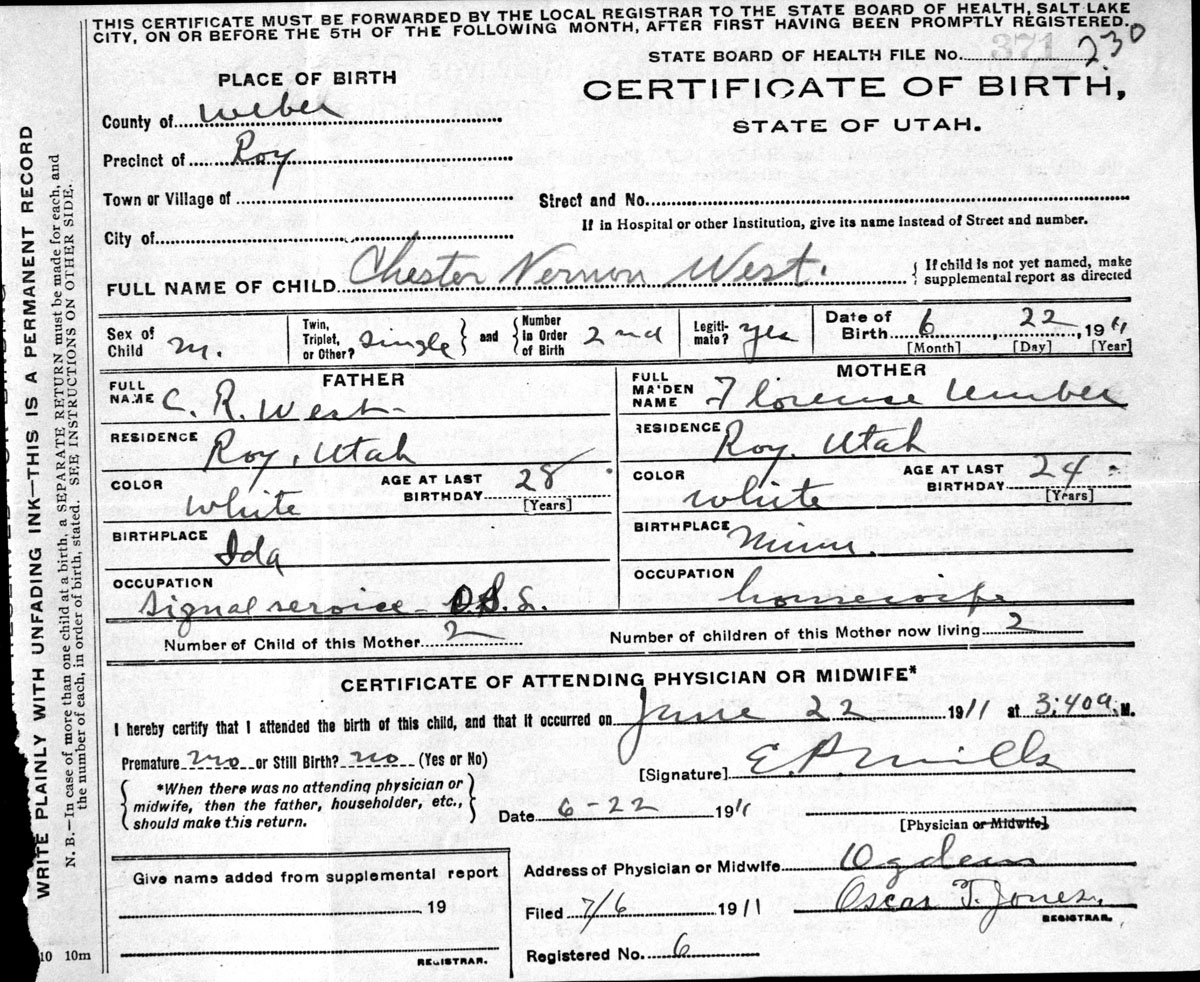 THIS CERTIFICATE MUST BE FORWARDED BY THE LOCAL REGISTRAR TO THE STATE BOARD OF HEALTH, SALT LAKE
CITY, ON OR BEFORE THE 5TH OF THE FOLLOWING MONTH, AFTER FIRST HAVING BEEN PROMPTLY REGISTERED.
STATE BOARD OF HEALTH FILE No. 371 230
PLACE OF BIRTH
CERTIFICATE OF BIRTH,
STATE OF UTAH.
County of Weber
Precinct of Roy
Town or Village of
Street and No.
If in Hospital or other Institution, give its name instead of Street and number.
City of
FULL NAME OF CHILD Chester Vernon West.
{ If child is not yet named, make
supplemental report as directed
Sex of
Child M.
Twin,
Triplet,
or Other? single } and { Number
in Order
of Birth 2nd
Legiti-
mate? yes
Date of
Birth 6 22, 1911
[Month] [Day] [Year]
FATHER
FULL
NAME C. R. West
RESIDENCE Roy, Utah
COLOR White
AGE AT LAST
BIRTHDAY 28
[Years]
BIRTHPLACE Ida
OCCUPATION
Signal service
MOTHER
FULL
MAIDEN
NAME Florence Umber
RESIDENCE Roy, Utah
COLOR White
AGE AT LAST
BIRTHDAY 24
[Years]
BIRTHPLACE Minn.
OCCUPATION housewife
Number of Child of this Mother 2
Number of children of this Mother now living 2
CERTIFICATE OF ATTENDING PHYSICIAN OR MIDWIFE*
I hereby certify that I attended the birth of this child, and that it occurred on June 22 1911 at 3:40 a. M.
Premature no or Still Birth? no (Yes or No)
{ *When there was no attending physician or
midwife, then the father, householder, etc.,
should make this return. }
[Signature] E. P. Mills
Date 6-22 1911
[Physician or Midwife]
Give name added from supplemental report
19
REGISTRAR.
Address of Physician or Midwife Ogden
Filed 7/6 1911 Oscar T. Jones.
REGISTRAR.
Registered No. 6
WRITE PLAINLY WITH UNFADING INK—THIS IS A PERMANENT RECORD
N. B.—In case of more than one child at a birth, a SEPARATE RETURN must be made for each, and
the number of each, in order of birth, stated. SEE INSTRUCTIONS ON OTHER SIDE.
10 10m